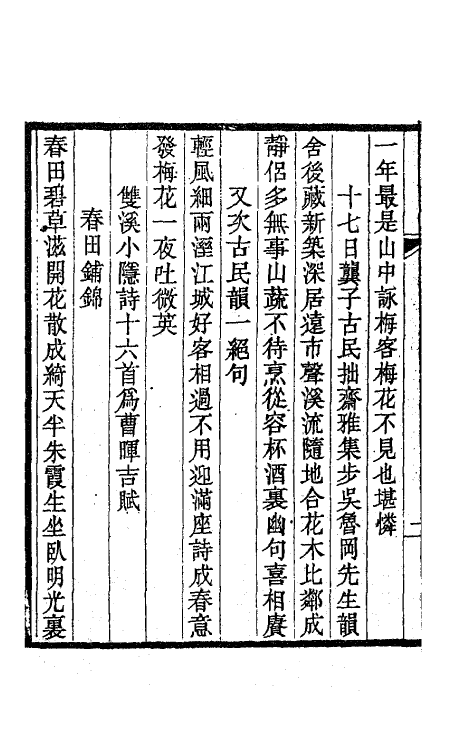 一年最是山中詠梅客梅花不見也堪憐
十七日龔子古民拙齋雅集步吳魯岡先生韻
舍後藏新築深居遠市聲溪流隨地合花木比鄰成
靜侶多無事山蔬不待烹從容杯酒裏幽句喜相賡
又次古民韻一絕句
輕風細雨溼江城好客相過不用迎滿座詩成春意
發梅花一夜吐微英
雙溪小隱詩十六首爲曹暉吉賦
春田鋪錦
春田碧草滋開花散成綺天半朱霞生坐臥明光裏